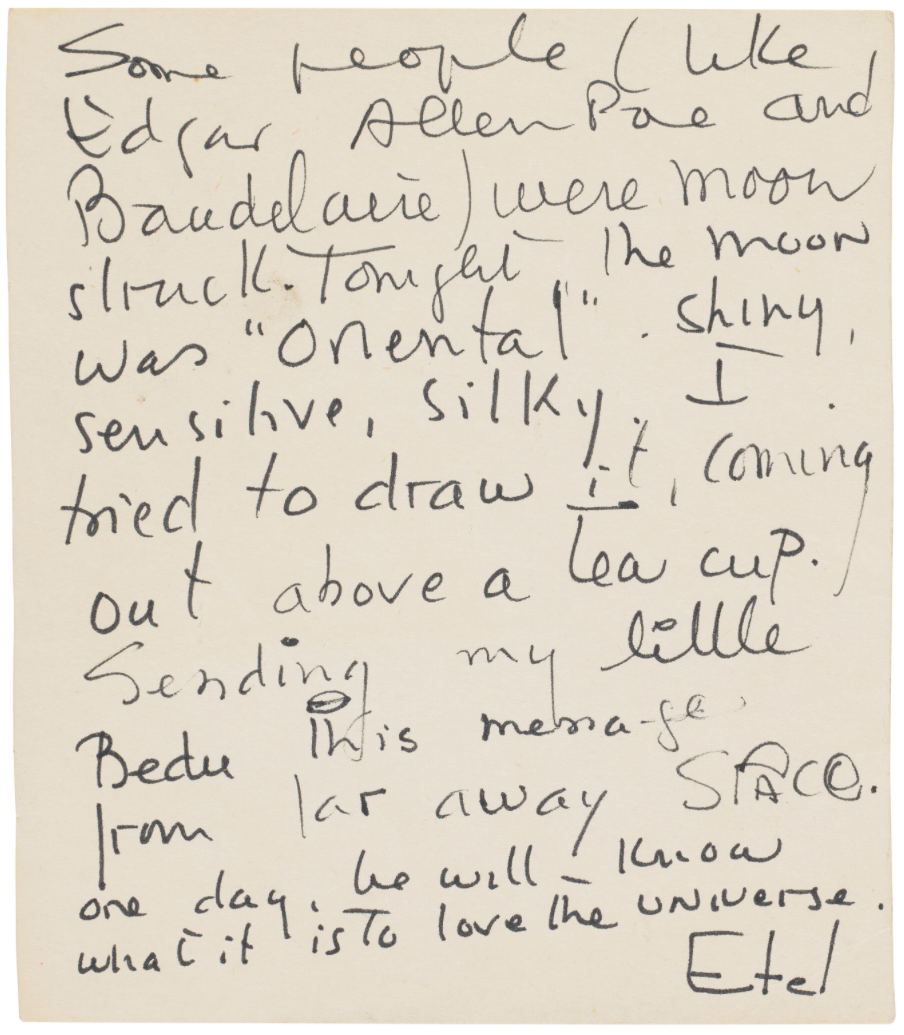 Some people (like
Edgar Allen Poe and
Baudelaire) were moon
struck. Tonight, the moon
was "Oriental". Shiny,
sensitive, silky. I
tried to draw it, coming
out above a tea cup.
Sending my little
Bedu this message
from far away SPACE.
one day, he will know
what it is to love the UNIVERSE.
Etel